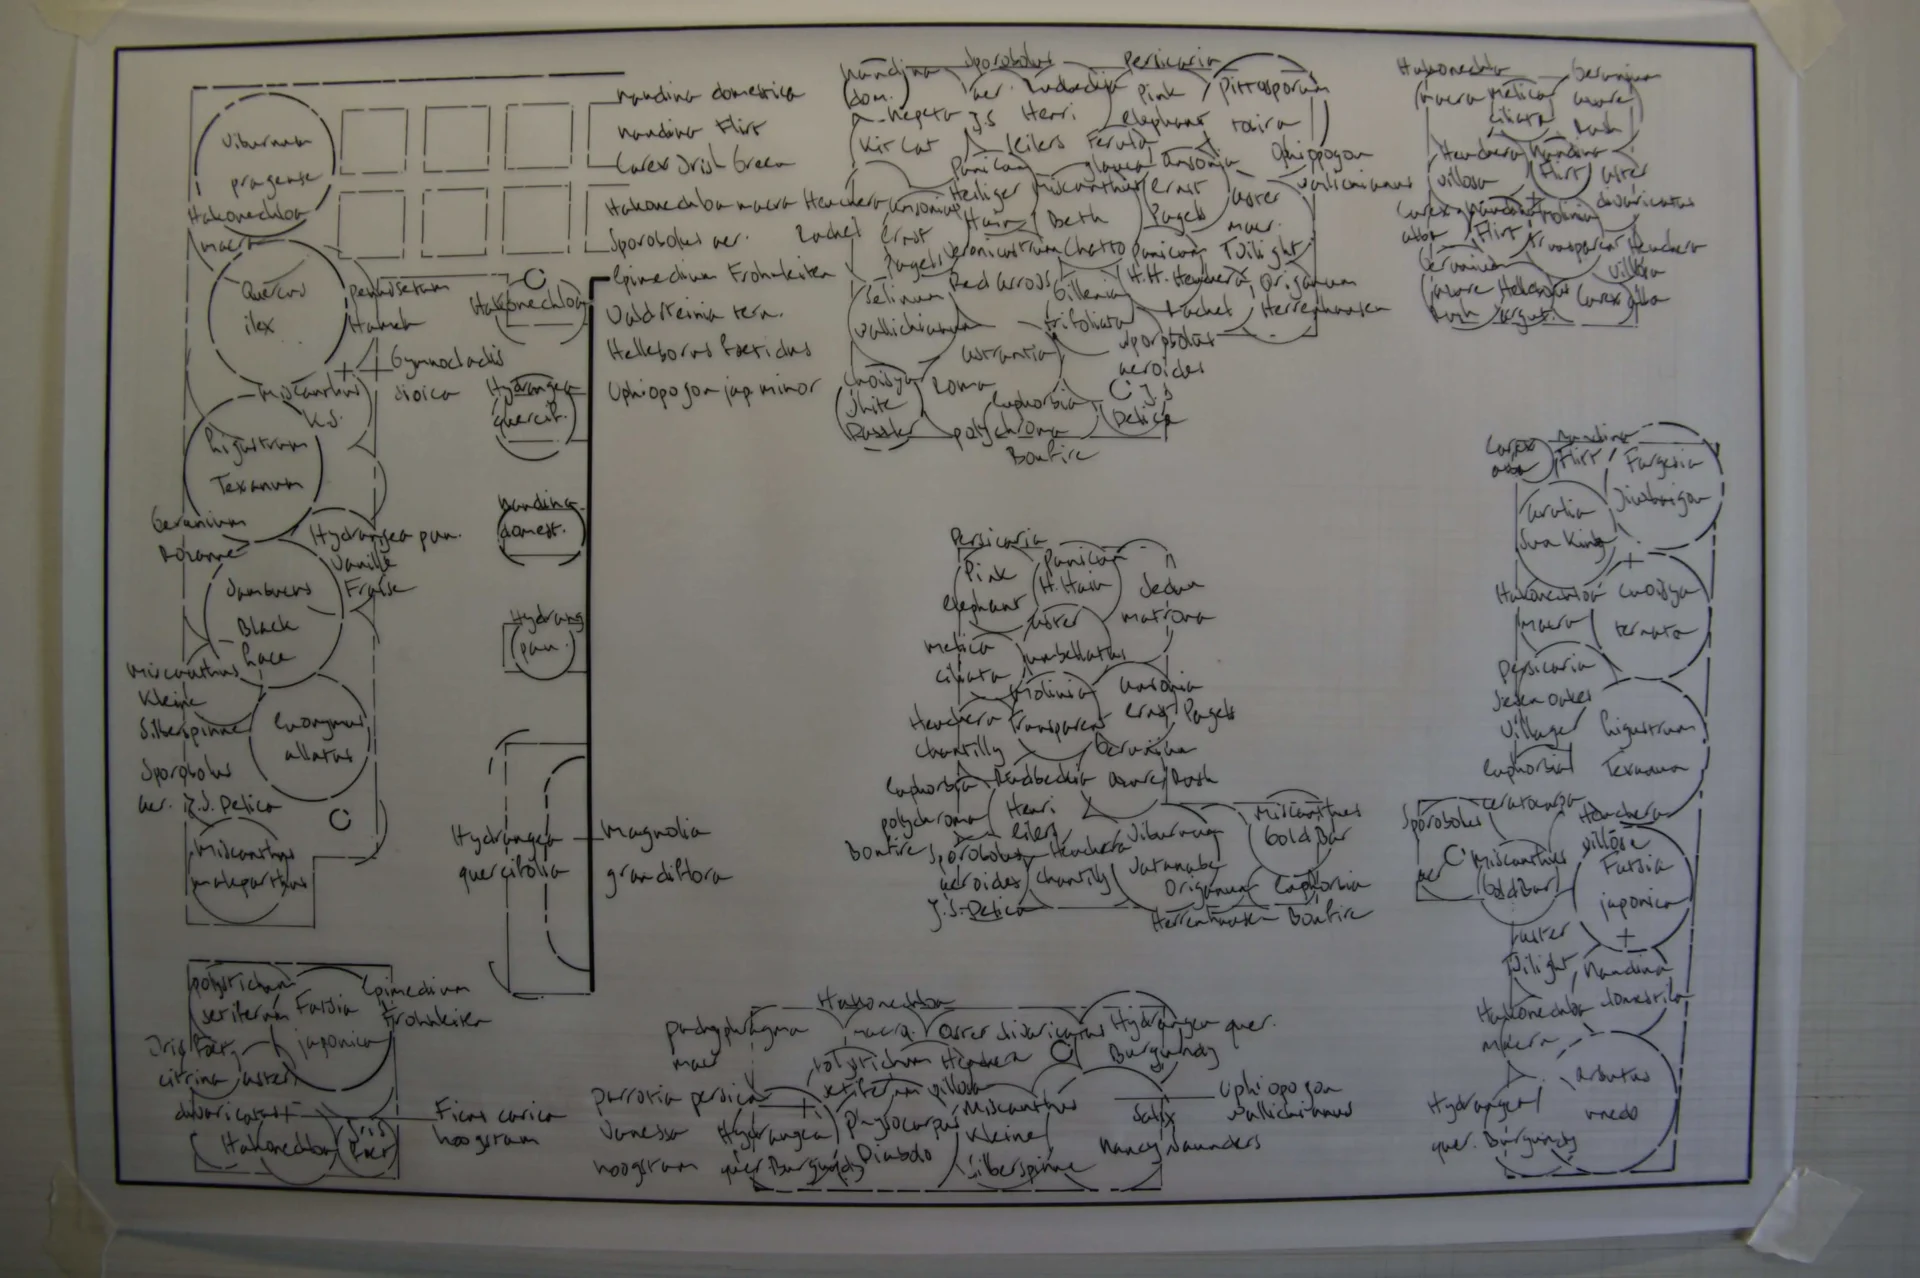 Viburnum
pragense
Hakonechloa
macra
Quercus
ilex
Pennisetum
Hameln
Gymnocladis
dioica
Miscanthus
K.S.
Ligustrum
Texanum
Geranium
Rozanne
Hydrangea pan.
Vanille
Fraise
Sambucus
Black
Lace
Miscanthus
Kleine
Silberspinne
Sporobolus
aer. J.S. Delica
Euonymus
allatus
Miscanthus
malepartus
Nandina domestica
Nandina Flirt
Carex Irish Green
Hakonechloa macra
Sporobolus aer.
Epimedium Frohnleiten
Waldsteinia tern.
Helleborus foetidus
Ophiopogon jap minor
Hakonechloa
Hydrangea
quercif.
Nandina
domest.
Hydrang
pan.
Hydrangea
quercifolia
Magnolia
grandiflora
polystichum
setiferum
Fatsia
japonica
Epimedium
Frohnleiten
Iris Foet.
citrina
aster
divaricatus
Hakonechloa
Iris
Foet
Ficus carica
hoogstam
Nandina
dom.
Sporobolus
aer.
J.S
Rudbeckia
Henri
Eilers
Persicaria
Pink
elephant
Pittosporum
tobira
Nepeta
Kit Cat
Ferula
glauca
Amsonia
Ernst
Pagels
Ophiopogon
wallichianus
Panicum
Heiliger
Hain
Miscanthus
Beth
Chatto
Aster
macr.
Twilight
Heuchera
Rachel
Amsonia
Ernst
Pagels
Veronicastrum
Red Arrows
Panicum
H.H.
Heuchera
Rachel
Origanum
Herrenhausen
Selinum
wallichianum
Gillenia
trifoliata
Astrantia
Roma
Sporobolus
aeroides
J.S
Delica
Choisya
White
Dazzler
Euphorbia
polychroma
Bonfire
Hakonechloa
macra
Melica
ciliata
Geranium
azure
Rush
Heuchera
villosa
Nandina
Flirt
Aster
divaricatus
Carex
alba
Nandina
Flirt
Molinia
transparent
Heuchera
villosa
Geranium
azure
Rush
Helleborus
argut.
Carex alba
Persicaria
Pink
elephant
Panicum
H. Hain
Sedum
matrona
Aster
umbellatus
Melica
ciliata
Molinia
Transparent
Amsonia
Ernst Pagels
Heuchera
Chantilly
Geranium
azure Rush
Euphorbia
polychroma
Bonfire
Rudbeckia
Henri
Eilers
Sporobolus
aeroides
J.S. Delica
Heuchera
Chantilly
Viburnum
Watanabe
Miscanthus
Gold Bar
Origanum
Herrenhausen
Euphorbia
Bonfire
Carex
alba
Nandina
Flirt
Fargesia
Jiuzhaigou
Aralia
Sun King
Hakonechloa
macra
Choisya
ternata
Persicaria
Seven Oakes
Village
Ligustrum
Texanum
Euphorbia
ceratocarpa
Heuchera
villosa
Sporobolus
aer
Miscanthus
Gold Bar
Fatsia
japonica
Aster
Twilight
Nandina
domestica
Hakonechloa
macra
Arbutus
unedo
Hydrangea
quer. Burgundy
Hakonechloa
macra
pachyphragma
mac
Aster divaricatus
Hydrangea quer.
Burgundy
Polystichum
setiferum
Heuchera
villosa
Parrotia persica
Vanessa
hoogstam
Hydrangea
quer. Burgundy
Physocarpus
Diabolo
Miscanthus
Kleine
Silberspinne
Salix
Nancy Saunders
Ophiopogon
wallichianus